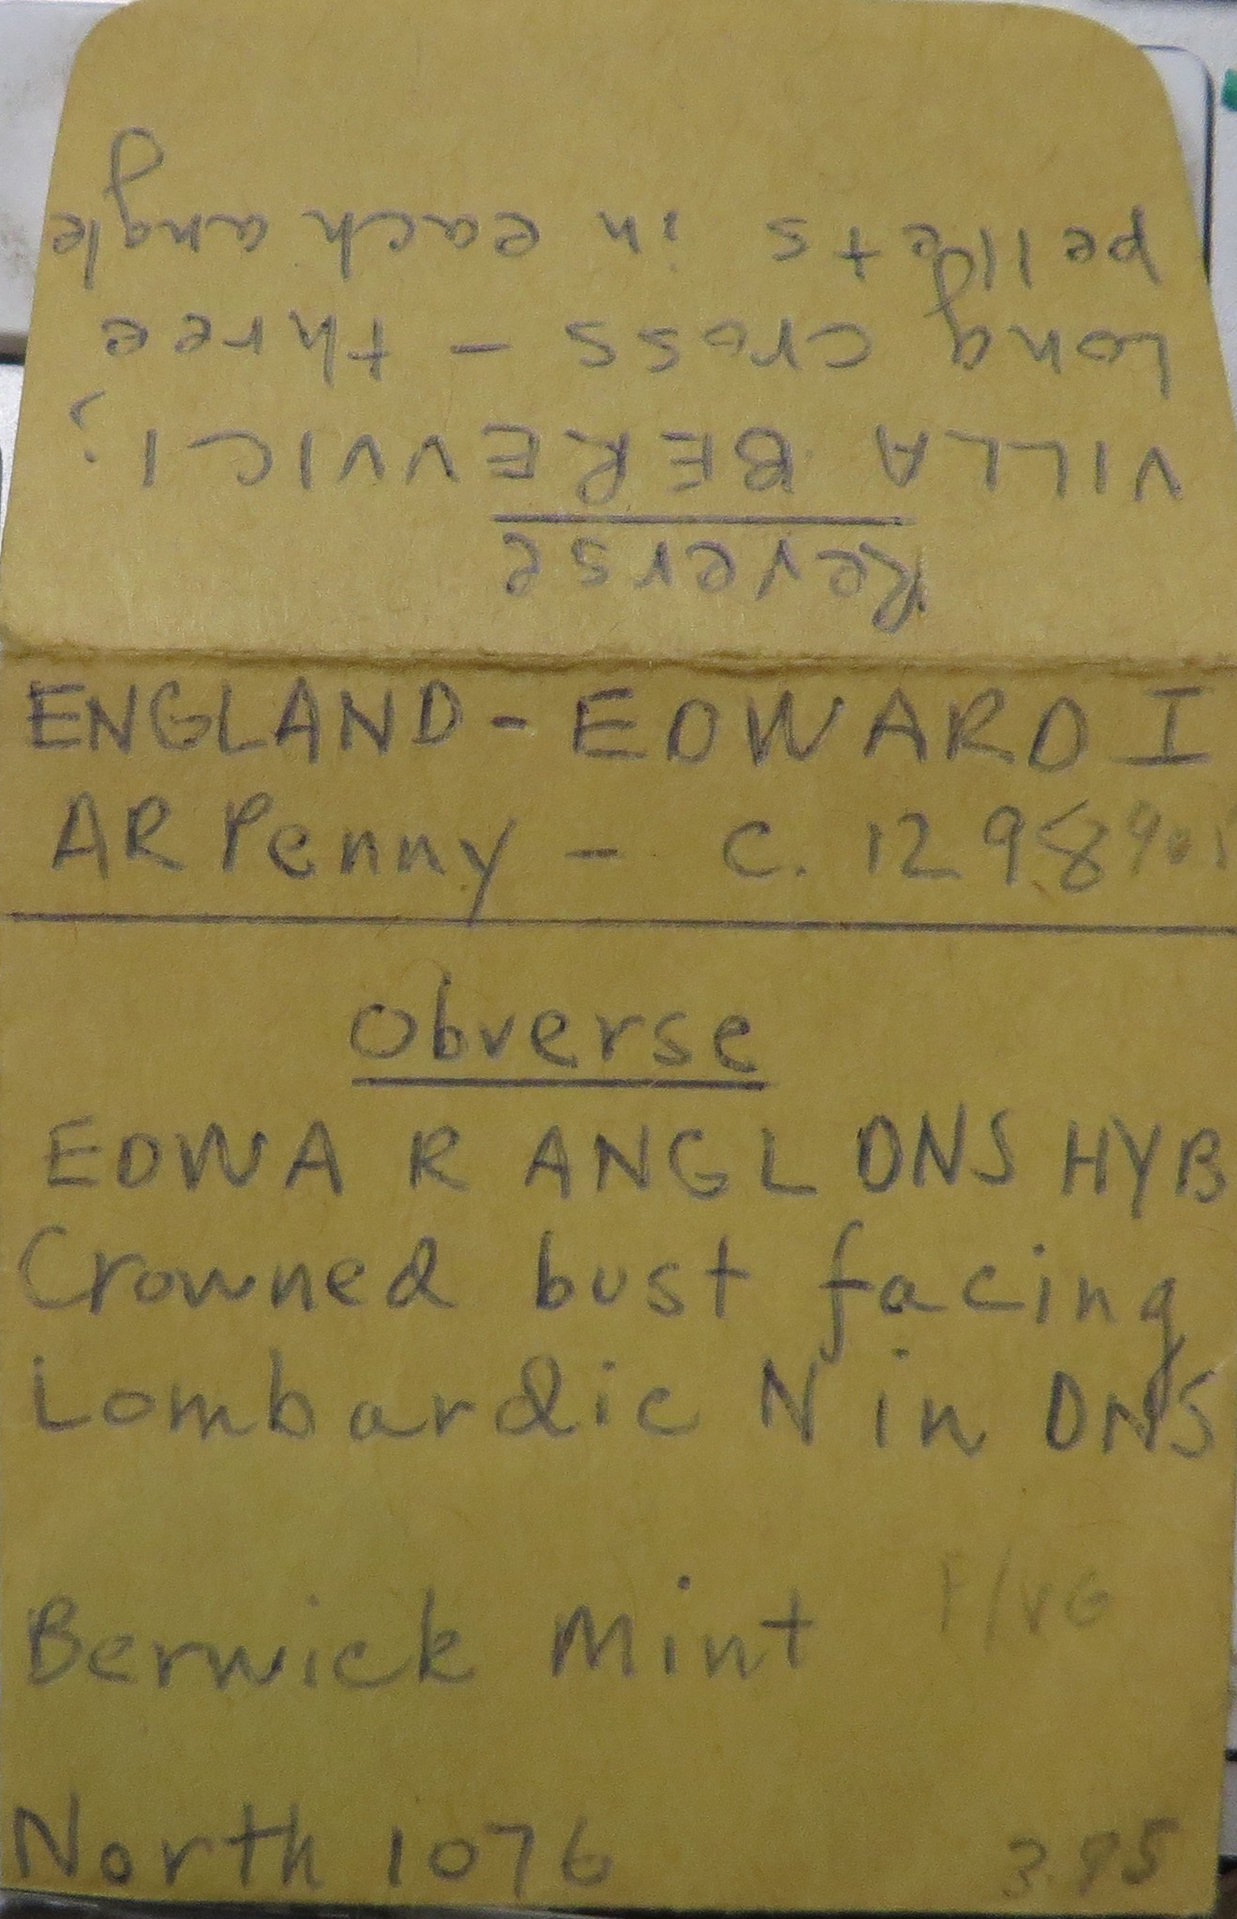 Reverse
VILLA BEREVVICI;
Long cross - three
pellets in each angle
ENGLAND - EDWARD I
AR Penny - c. 1298
Obverse
EDWA R ANGL DNS HYB
Crowned bust facing
Lombardic N in DNS
Berwick Mint F/VG
North 1076 3.95